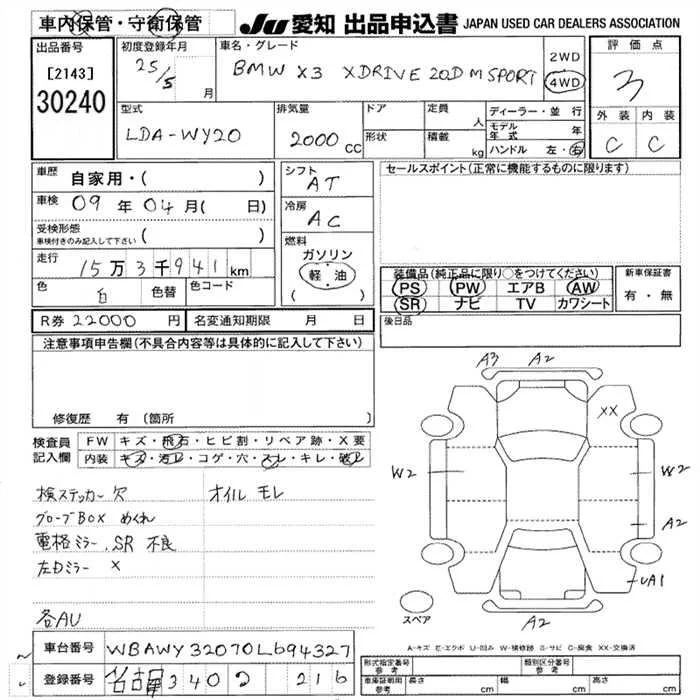 車内保管・守衛保管
JU 愛知 出品申込書 JAPAN USED CAR DEALERS ASSOCIATION
出品番号
[2143]
30240
初度登録年月
25/5 月
車名・グレード
BMW X3 XDRIVE 20D M SPORT
2WD
4WD
評価点
3
外装 内装
C C
型式
LDA-WY20
排気量
2000 CC
ドア
形状
定員 人
積載 kg
ディーラー・並行
モデル年式 年
ハンドル 左・右
車歴 自家用・( )
車検 09 年 04 月( 日)
受検形態
車検付きのみ記入して下さい ( )
走行 15万3千941 km
色 白 色替 色コード
シフト
AT
冷房
AC
燃料
ガソリン
軽油
( )
セールスポイント(正常に機能するものに限ります)
装備品(純正品に限り○をつけてください)
PS PW エアB AW
SR ナビ TV カワシート
新車保証書
有・無
R券 22000 円 名変通知期限 月 日
後日品
注意事項申告欄(不具合内容等は具体的に記入して下さい)
修復歴 有(箇所 )
検査員記入欄
FW キズ・飛石・ヒビ割・リペア跡・X要
内装 キズ・汚レ・コゲ・穴・スレ・キレ・破レ
検ステッカー欠 オイル モレ
グローブBOX めくれ
電格ミラー、SR 不良
左Dミラー X
各AU
A3 A2
XX
W2 W2
A2
UA1
スペア
A2
A-キズ E-エクボ U-凹み W-補修跡 S-サビ C-腐食 XX-交換済
車台番号 WBAWY32070L694327
登録番号 名古屋 340 つ 216
形式指定番号 参考
類別区分番号 参考
車庫証明用 参考 長さ cm 幅 cm 高さ cm